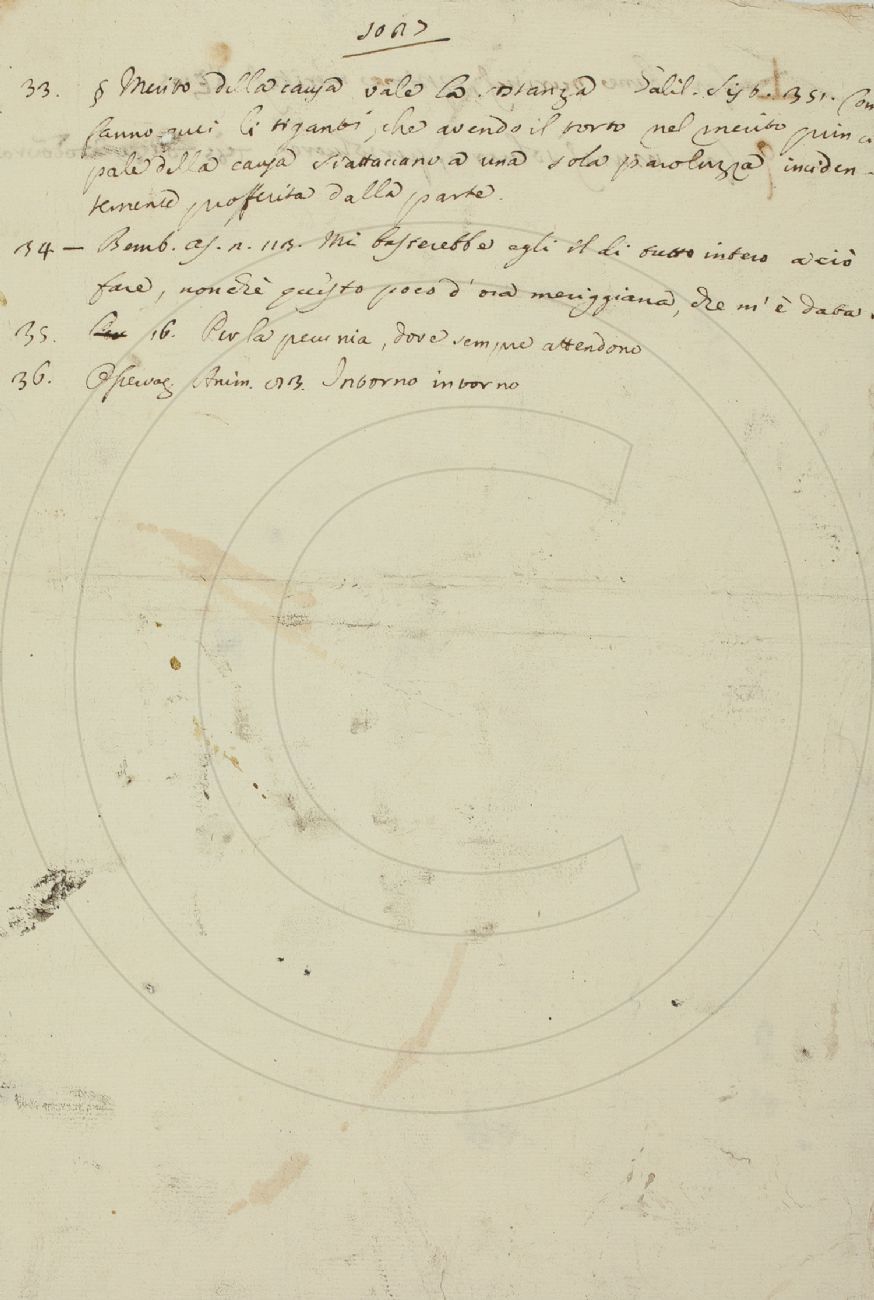 33. § Merito della causa vale la stanza Galil. Sist. 351. Com
fanno quei litiganti, che avendo il torto nel merito princi
pale della causa s'attaccano a una sola paroluzza inciden-
temente profferita dalla parte.
34 — Bemb. As. n. 113. Mi basterebbe egli il dì tutto intero a ciò
fare, nonchè questo poco d'ora meriggiana, che m'è data.
35. 16. Per la pecunia, dove sempre attendono
36. Anim. 83. Intorno intorno